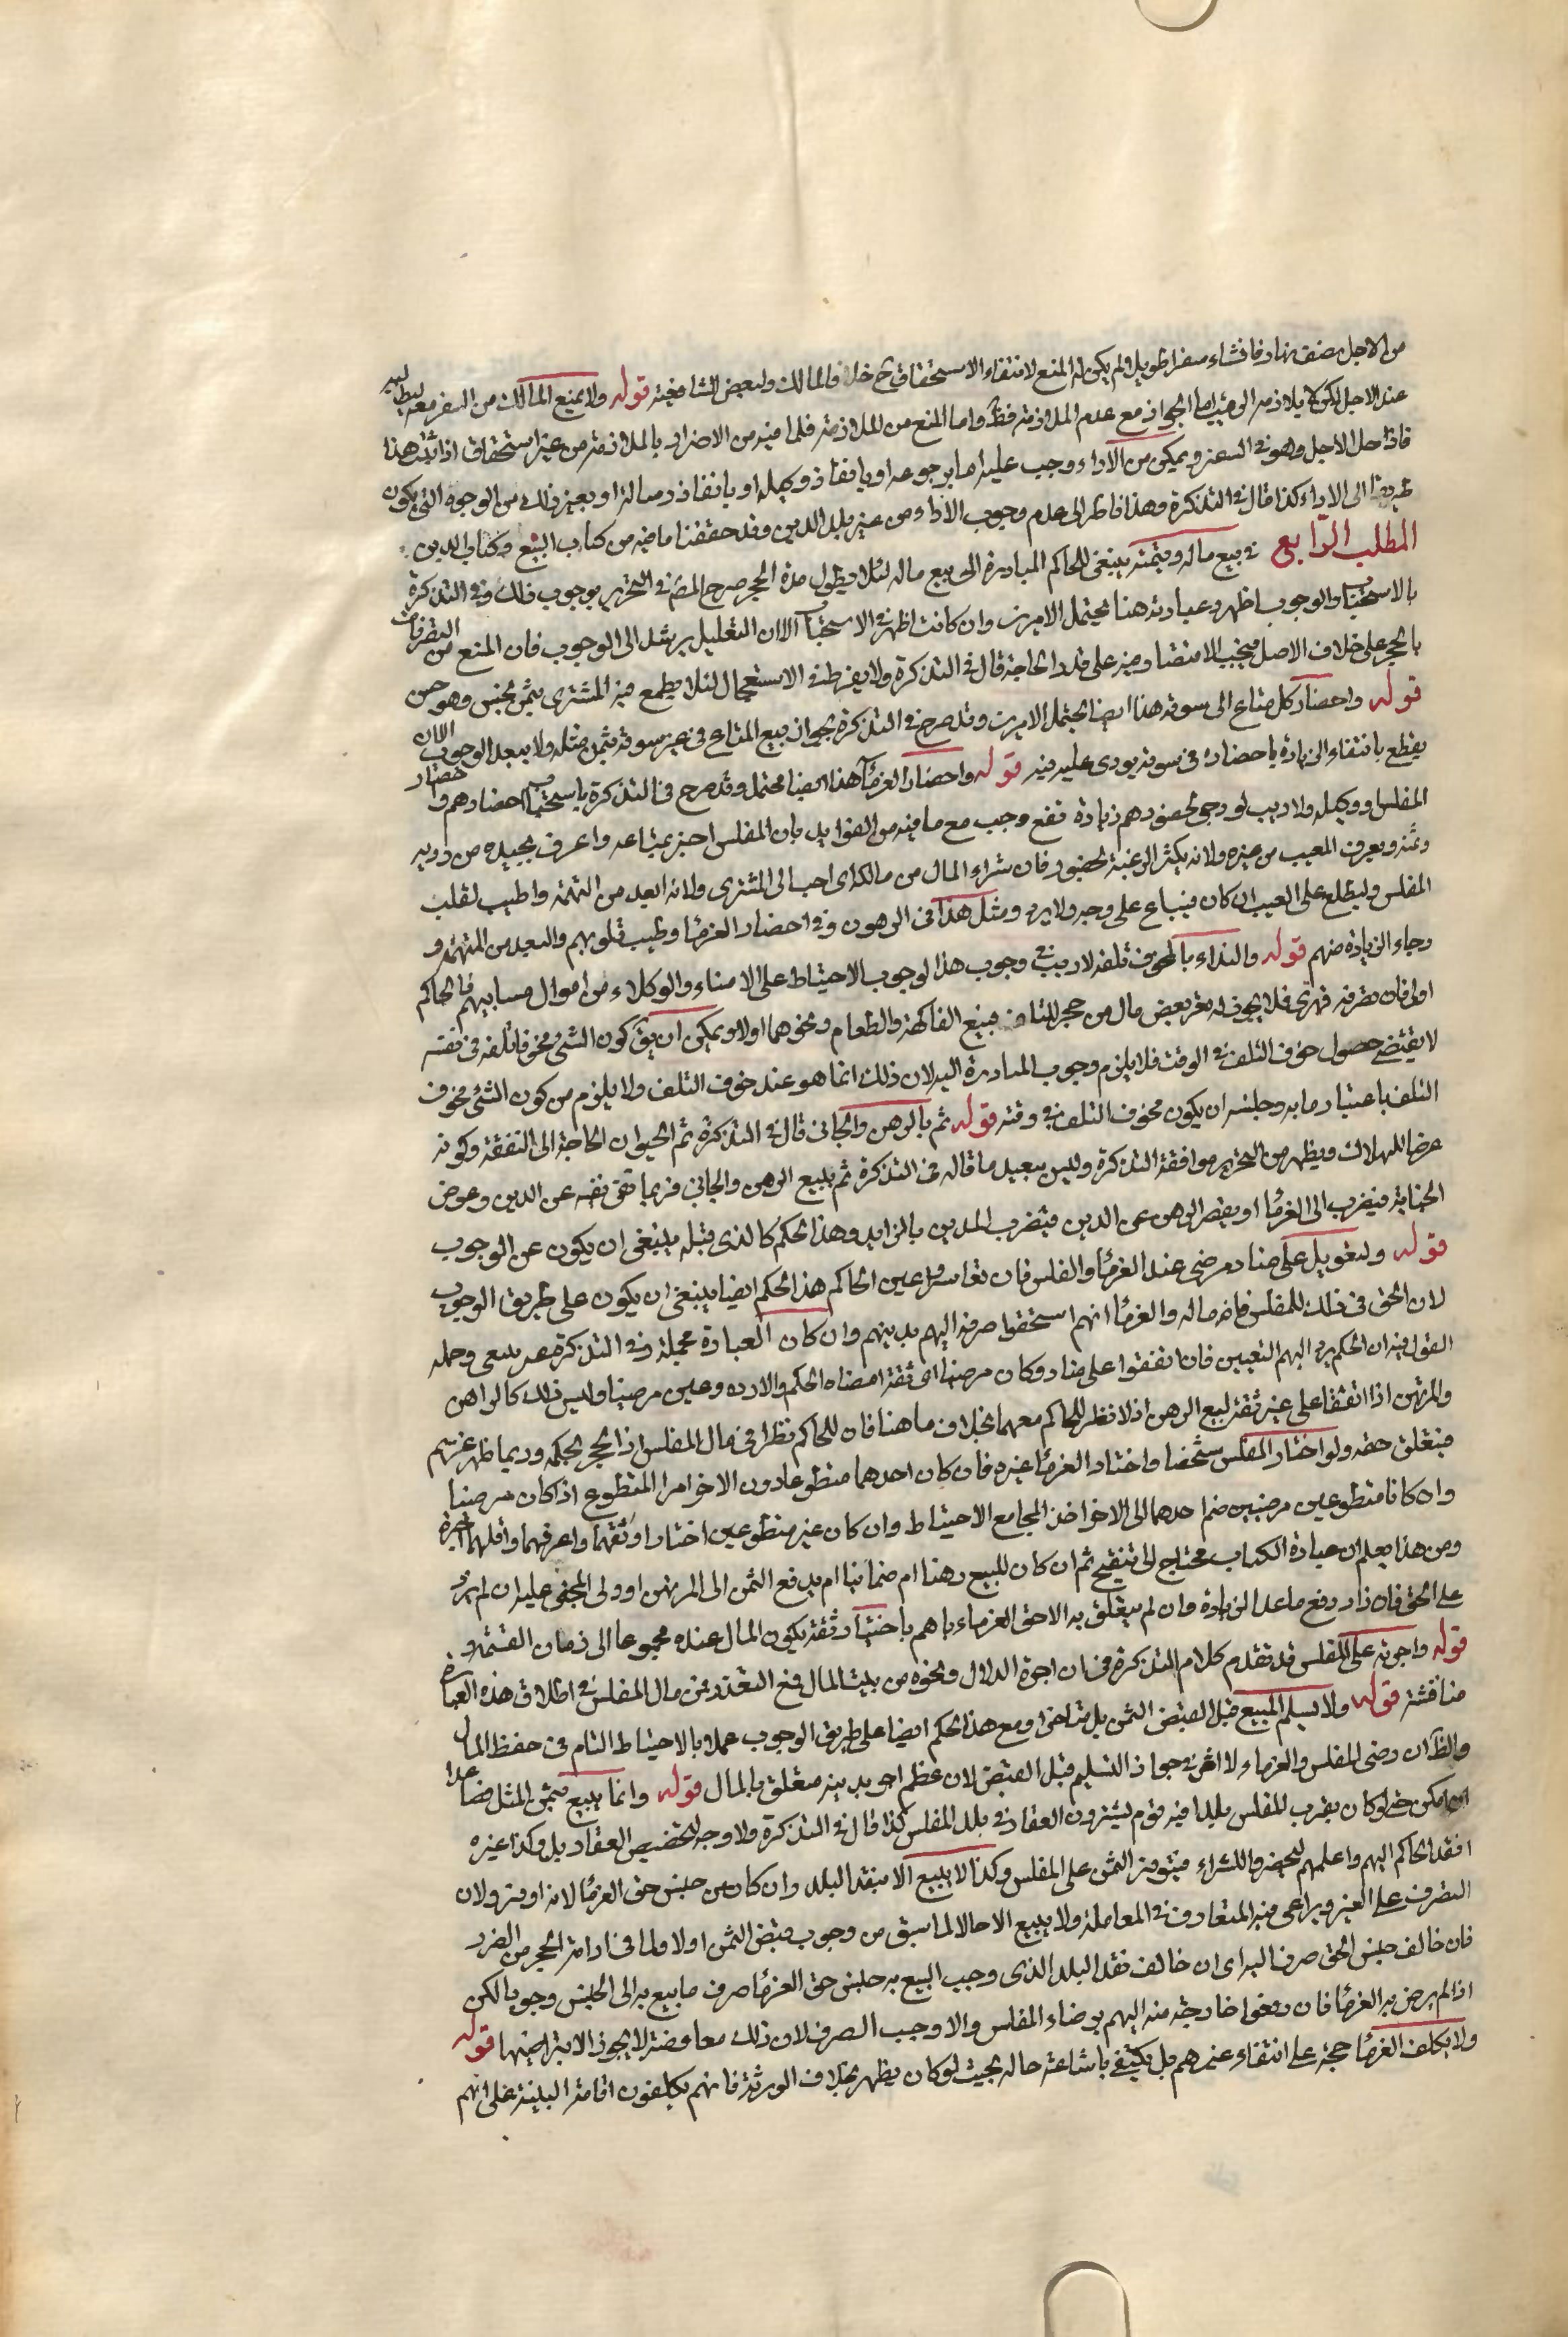 من الاجل نصف نهار فانشاء سفرا طويلا لم يكن له المنع لانتفاء الاستحقاق ح خلافا لمالك ولبعض الشافعية قوله ولا يمنع المالك من السفر معه ليطالبه
عند الاجل لكن لا يلازمه الى اما الجواز مع عدم الملازمة فظ واما المنع من الملازمة فلما فيه من الاضرار بالملازمة من غير استحقاق اذا ثبت هذا
فاذا حل الاجل وهو في السفر ويمكن من الاداء وجب عليه اما برجوعه او بانفاذ وكيله او بانفاذ رسالة او بغير ذلك من الوجوه التي يكون
طريقا الى الاداء كذا قال في التذكرة وهذا ناظر الى عدم وجوب الاداء من غير بلد الدين وقد حققنا ما فيه من كتاب البيع وكتاب الدين
المطلب الرابع في بيع ماله وقسمته ينبغي للحاكم المبادرة الى بيع ماله لئلا يطول مدة الحجر صرح المص في التحرير بوجوب ذلك وفي التذكرة
بالاستحباب والوجوب اظهر وعبارته هنا يحتمل الامرين وان كانت اظهر في الاستحباب الا ان التعليل يرشد الى الوجوب فان المنع من التصرفات
بالحجر على خلاف الاصل فيجب الاقتصار فيه على قدر الحاجة قال في التذكرة ولا يفرط في الاستعجال لئلا يطمع فيه المشتري بثمن بخس وهو حسن
قوله واحضار كل متاع الى سوقه هذا ايضا يحتمل الامرين وقد صرح في التذكرة بجواز بيع المتاع في غير سوقه بثمن مثله ولا يبعد الوجوب الا ان
يقطع بانتفاء الزيادة باحضاره في سوقه يودى عليه فيه قوله واحضار الغرماء هذا ايضا محتمل وقد صرح في التذكرة باستحباب احضارهم واحضار
المفلس او وكيله ولا ريب لو رجى لحضورهم زيادة نفع وجب مع ما فيه من الفوايد بان المفلس اخبر بمتاعه واعرف بجيده من رديه
وثمنه ويعرف المعيب من غيره ولانه يكثر الرغبة لحضوره فان شراء المال من مالكه احب الى المشتري ولانه ابعد من التهمة واطيب لقلب
المفلس وليطلع على العيب ان كان فيباع على وجه لا يرد ومثل هذا في الرهون وفي احضار الغرماء وطيب قلوبهم والبعد من التهمة و
رجاء الزيادة منهم قوله والنداء بالمخوف تلفه لا ريب في وجوب هذا لوجوب الاحتياط على الامناء والوكلاء من اموال مسابيهم فالحاكم
اولى فان تصرفه قهري فلا يجوز له تعريض مال من حجر للتلف فبيع الفاكهة والطعام ونحوهما اولا ويمكن ان يق كون الشي مخوفا تلفه في نفسه
لا يقتضي حصول خوف التلف في الوقت فلا يلزم وجوب المبادرة اليه لان ذلك انما هو عند خوف التلف ولا يلزم من كون الشئ مخوف
التلف باعتبار ما به وجنسه ان يكون مخوف التلف في وقته قوله ثم بالرهن والجاني قال في التذكرة ثم الحيوان الحاجة الى النفقة وكونه
عرضا للهلاك ويظهر من التحرير موافقة التذكرة وليس ببعيد ما قاله في التذكرة ثم يبيع الرهن والجاني فربما تقى نفسه عن الدين وعوض
الجناية فيضرب الى الغرماء او يقصر الرهن عن الدين فيضرب المدين بالزايد وهذا الحكم كالذي قبله ينبغي ان يكون عن الوجوب
قوله وليعول على مناد مرضي عند الغرماء والفلس فان تعاسروا عين الحاكم هذا الحكم ايضا ينبغي ان يكون على طريق الوجوب
لان الحق في ذلك للمفلس فانه ماله والغرماء انهم استحقوا صرفه اليهم بدينهم وان كان العبارة محتملة وفي التذكرة عبر ينبغي وجمله
القول فيه ان الحكم يرد اليهم التعيين فان اتفقوا على مناد وكان مرضيا اى ثقة امضاه الحكم والا رده وعين مرضيا وليس ذلك كالراهن
والمرتهن اذا اتفقا على غير ثقة لبيع الرهن اذ لا نظر للحاكم معهما بخلاف ما هنا فان للحاكم نظرا في مال المفلس اذ الحجر بحكمه وربما ظهر غريم
فيتعلق حقه ولو اختار المفلس شخصا واختار الغرماء غيره فان كان احدهما متطوعا دون الاخر امر المتطوع اذ كان مرضيا
وان كانا متطوعين مرضيين ضم احدهما الى الاخر اخذا لمجامع الاحتياط وان كان غير متطوعين اختار اوثقهما واعرفهما واقلهما اجرة
ومن هذا يعلم ان عبارة الكتاب محتاج الى تنقيح ثم ان كان للبيع رهنا ام ضمانا ام يدفع الثمن الى المرتهن او ولي المجني عليه ان لم يزد
على الحق فان زاد دفع ما عدا الزيادة وان لم يتعلق به الا حق الغرماء باهم باختيار ثقة يكون المال عنده مجموعا الى زمان القسمة و
قوله واجرته على المفلس قد تقدم كلام التذكرة في ان اجرة الدلال ونحوه من بيت المال فمع التعذر فمن مال المفلس في اطلاق هذه العبارة
مناقشة قوله ولا يسلم المبيع قبل القبض الثمن بل متاخرا ومع هذا الحكم ايضا على طريق الوجوب عملا بالاحتياط التام في حفظ المال
والظ ان رضى المفلس والغرماء لا اثر في جواز التسليم قبل القبض لان عظم اجوبه بينه متعلق بالمال قوله وانما يبيع بثمن المثل فصاعدا
ان امكن حتى لو كان بقرب للمفلس بلدا فيه قوم يشترون العقار في بلد المفلس كذا قال في التذكرة ولا وجه لتخصيص العقار بل وكذا غيره
انفذ الحاكم اليهم واعلمهم ليحضروا للشراء فيتوفر الثمن على المفلس وكذا لا يبيع الا بنقد البلد وان كان من جنس حق الغرماء لانه اوفر ولان
التصرف على الغير ويراعى فيه المتعارف في المعاملة ولا يبيع الا حالا لما سبق من وجوب قبض الثمن اولا ولما في ادامة الحجر من الضرر
فان خالف جنس الحق صرف اليه اى ان خالف نقد البلد الذي وجب البيع به جنس حق الغرماء صرف ما بيع به الى الجنس وجوبا لكن
اذا لم يرض به الغرماء فان دفعوا خارجة منه اليهم برضاء المفلس والا وجب الصرف لان ذلك معاوضة لا يجوز الا بتراضيهما قوله
ولا يكلف الغرماء حجة على انتفاء غيرهم بل يكتفي باشاعة حاله بحيث لو كان يظهر بخلاف الورثة فانهم يكلفون اقامة البينة على انهم